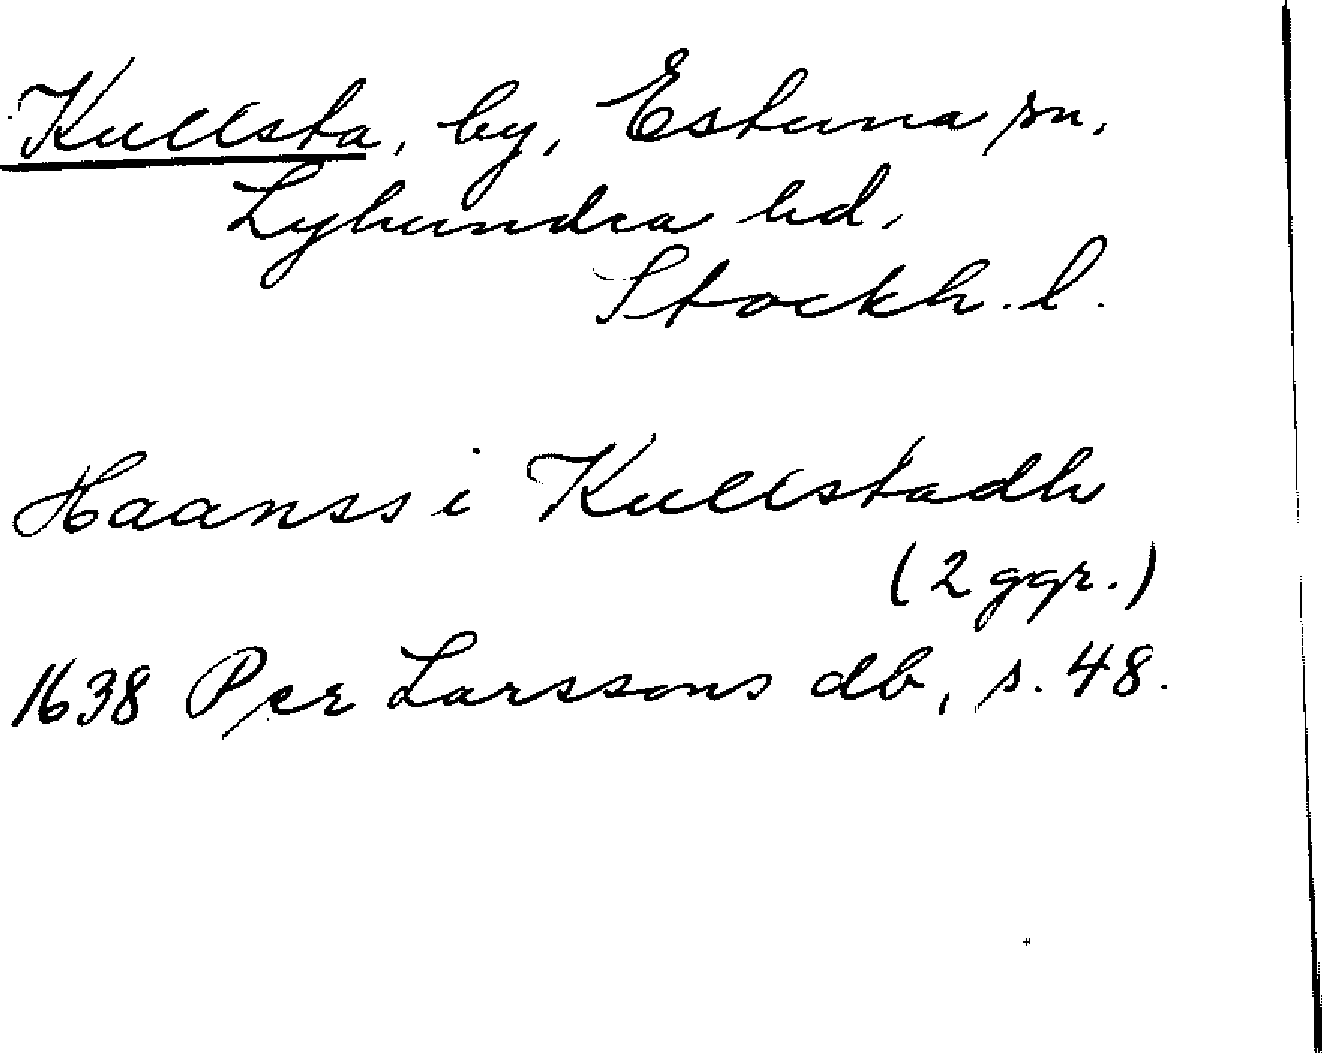 Kullsta, by, Estuna sn,
Lyhundra hd,
Stockh. l.
Haanss i Kullstadh
(2 ggr.)
1638 Per Larssons db, s. 48.